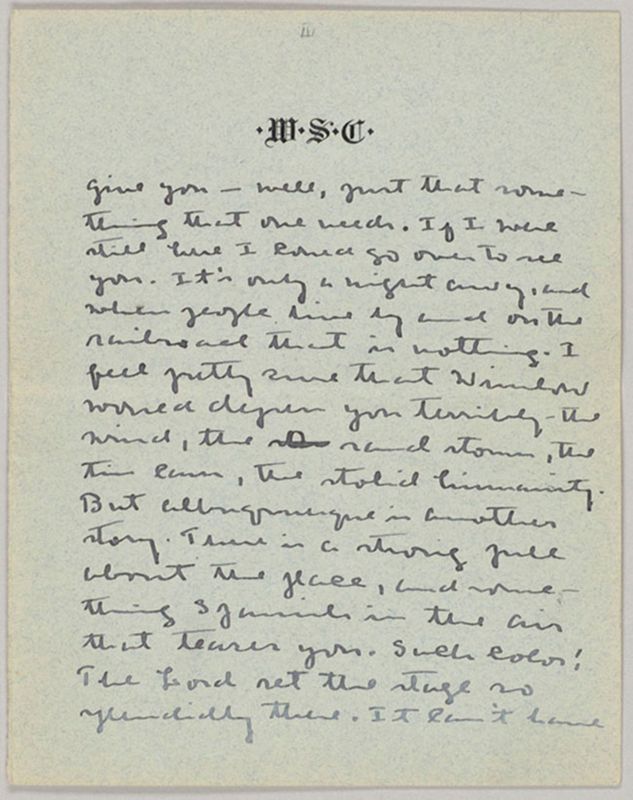 III
·W·S·C·
give you — well, just that some-
thing that one needs. If I were
still here I could go over to see
you. It's only a night away, and
when people live by and on the
railroad that is nothing. I
feel pretty sure that Winslow
would depress you terribly - the
wind, the sand storms, the
tin cans, the stolid humanity.
But Albuquerque is another
story. There is a strong pull
about the place, and some-
thing Spanish in the air
that teases you. Such color!
The Lord set the stage so
splendidly there. It can't have